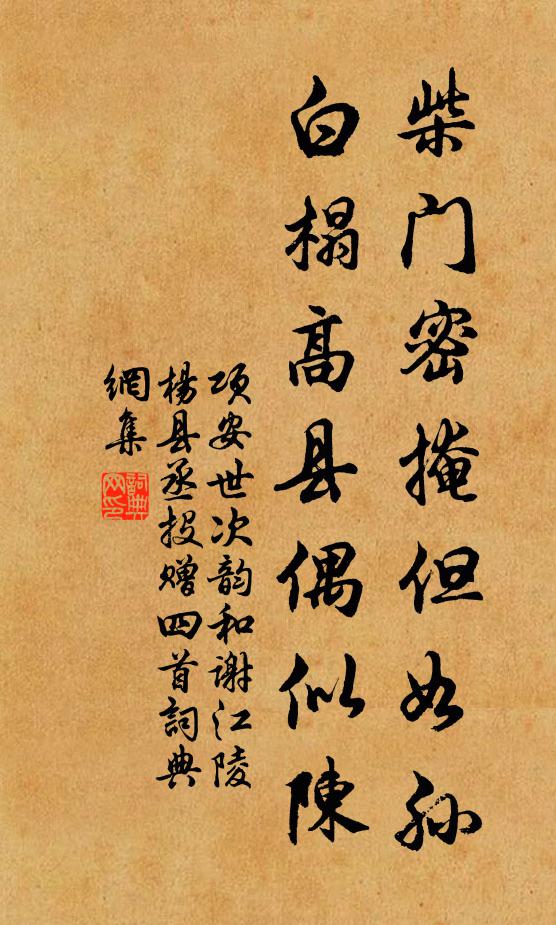 柴门密掩但如孙
白榻高县偶似陳
项安世次韵和谢江陵
楊县丞投赠四首詞典
網集
詞典網印